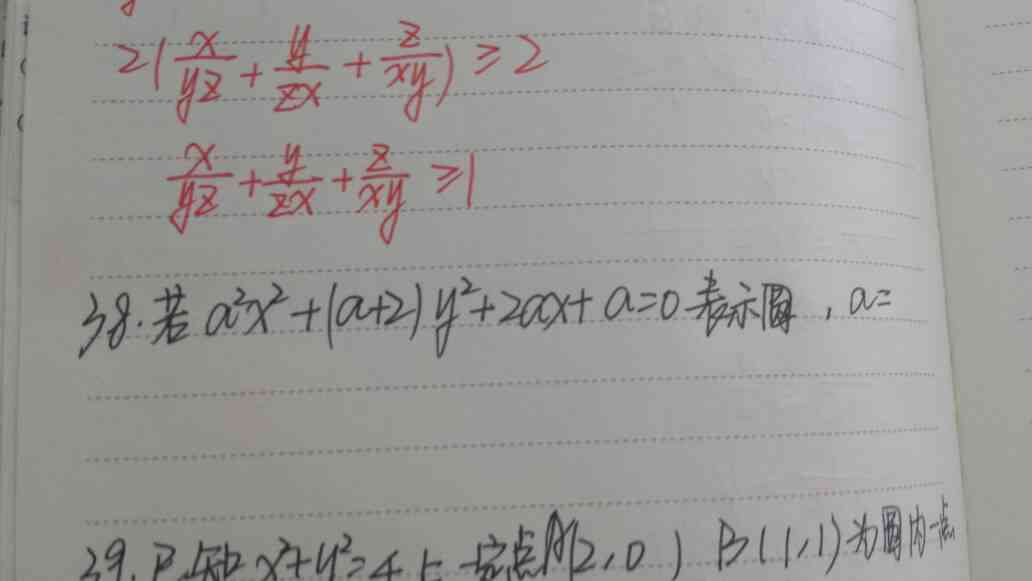 2(x/yz + y/zx + z/xy) ≥ 2
x/yz + y/zx + z/xy ≥ 1
38. 若 a²x² + (a+2)y² + 2ax + a = 0 表示圆，a=
39. 已知 x²+y²=4 上一定点A(2,0) B(1,1)为圆内一点